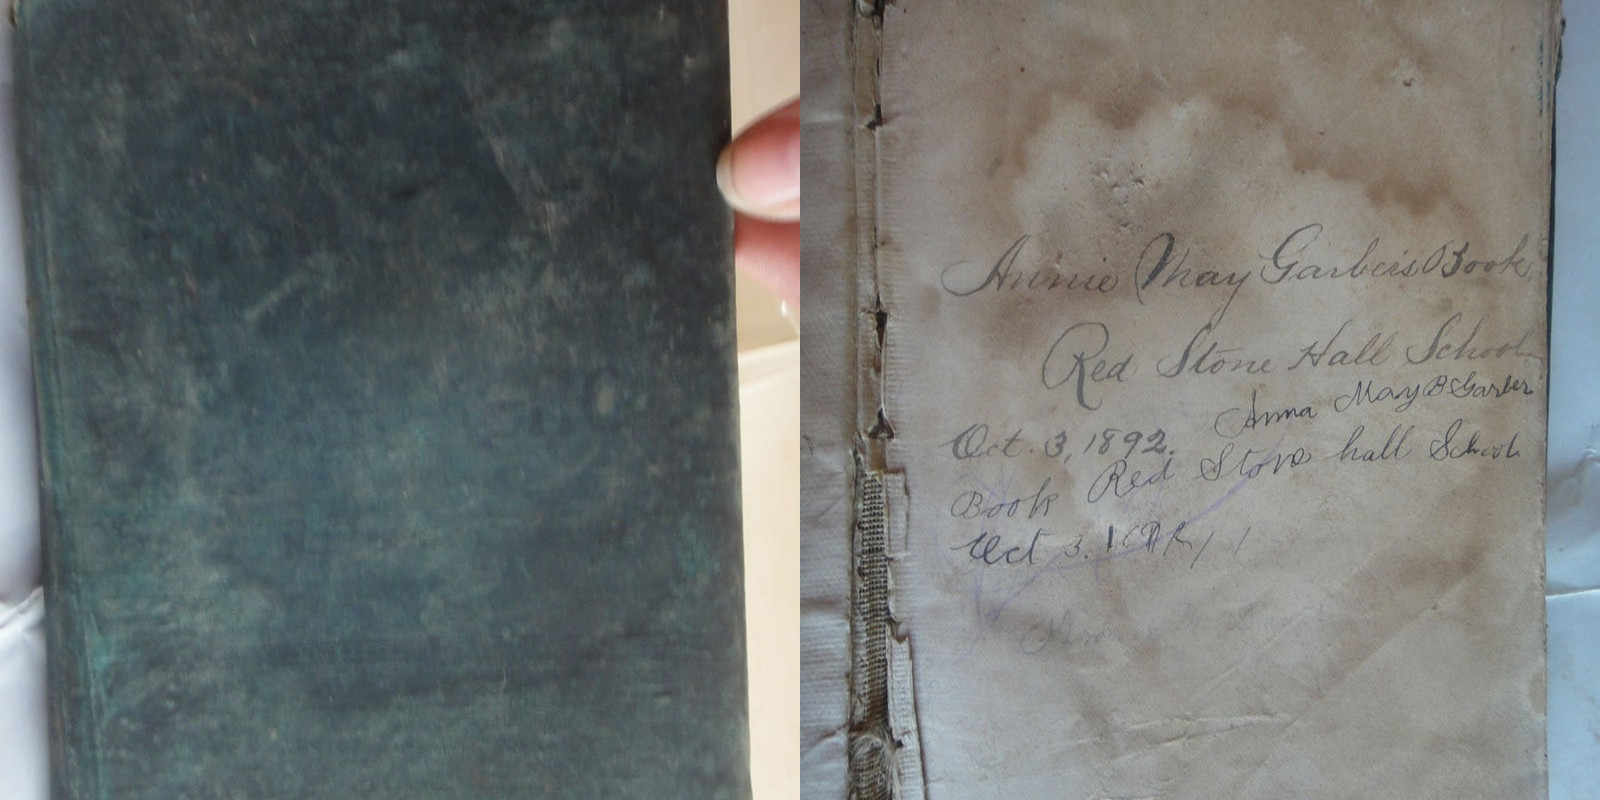 Annie May Garbers Book
Red Stone Hall School
Anna May B Garber
Oct. 3, 1892.
Book Red Stone hall School
Oct 3.